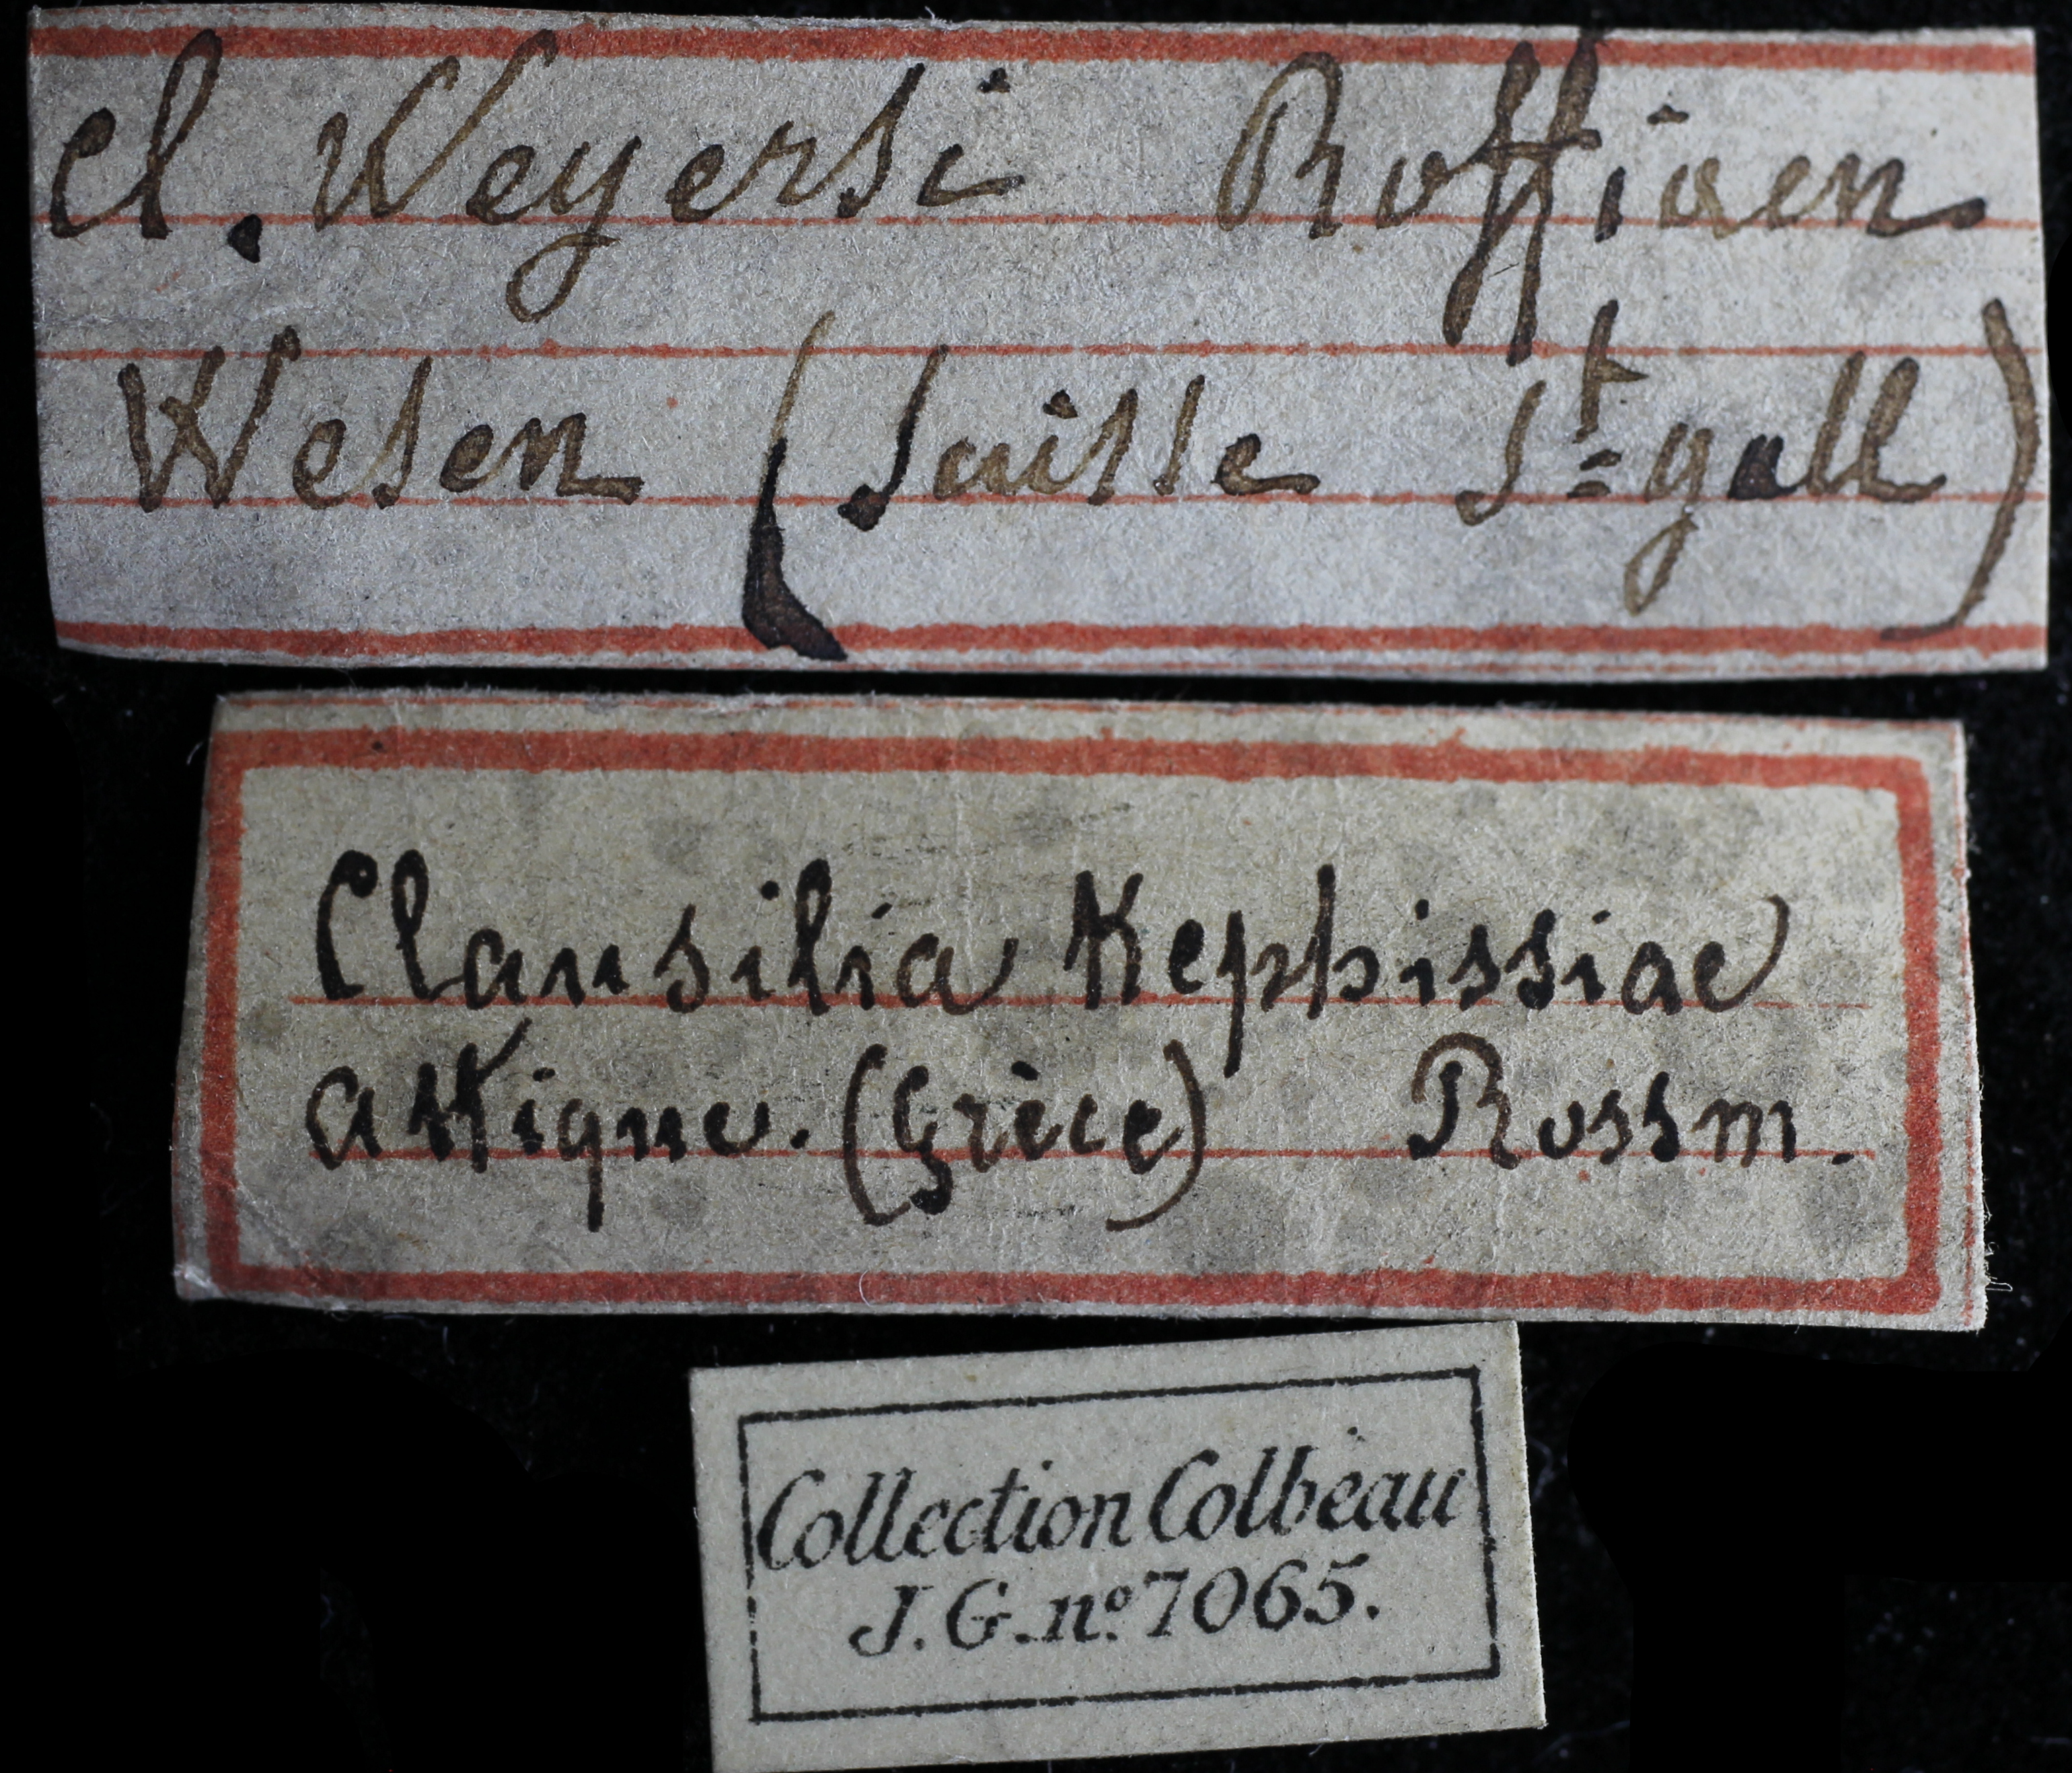 Cl. Weyersi Roffiaen
Wesen (Suisse St gall)
Clausilia Kephissiae
attique. (Grèce) Rossm.
Collection Colbeau
J. G. nº 7065.